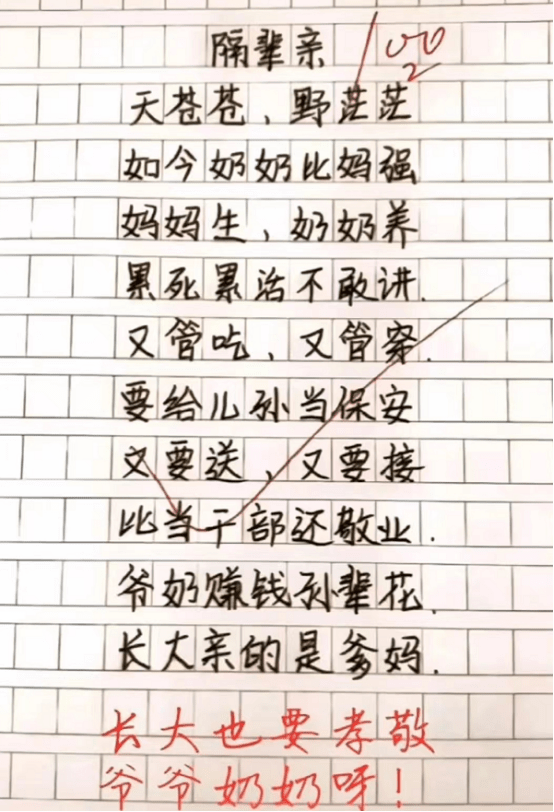 隔辈亲 100
天苍苍，野茫茫
如今奶奶比妈强
妈妈生，奶奶养
累死累活不敢讲.
又管吃，又管穿.
要给儿孙当保安
又要送，又要接
比当干部还敬业.
爷奶赚钱孙辈花.
长大亲的是爹妈.
长大也要孝敬
爷爷奶奶呀！